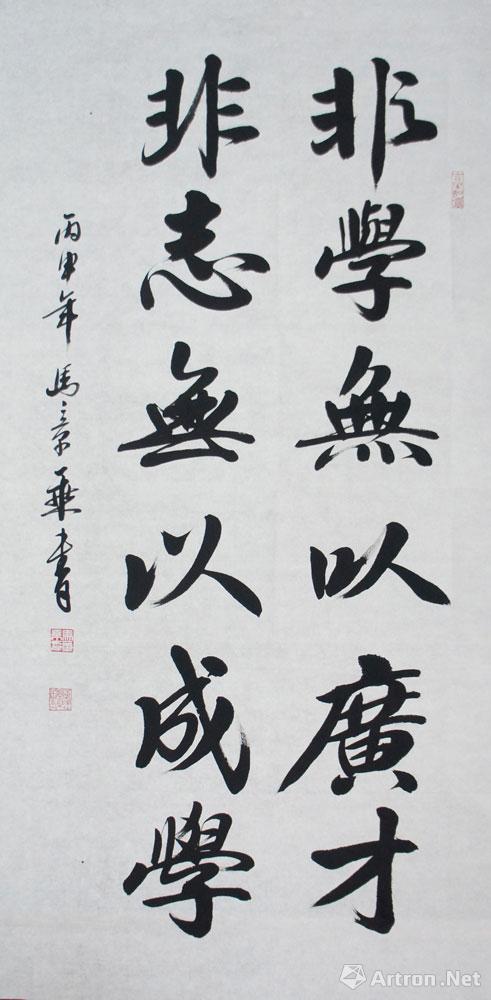 非學無以廣才
非志無以成學
丙申年馬景華書
Artron.Net